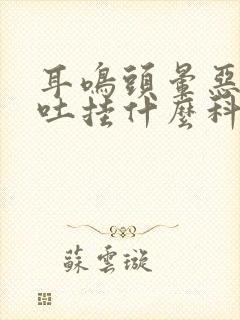 耳鳴頭暈惡
吐挂什麼科
蘇雲璇